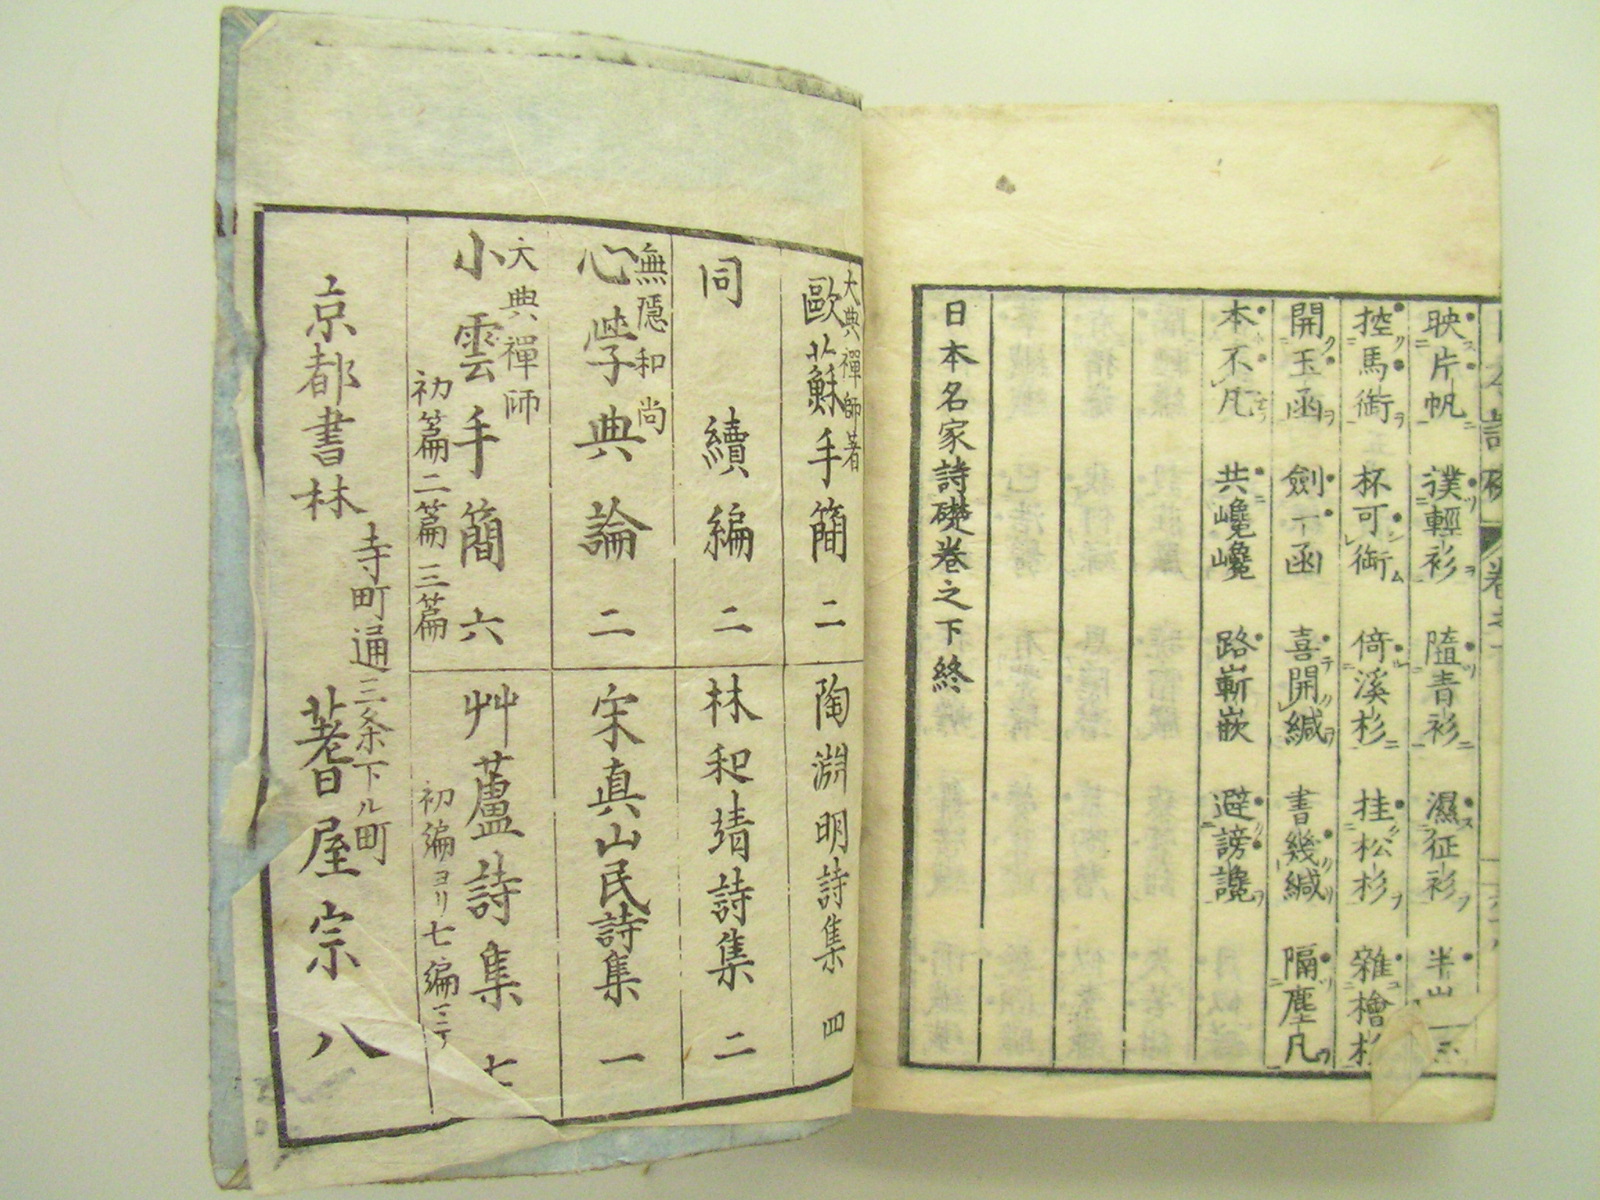 映片帆 濮輕衫 隨青衫 濕征衫 半山
控馬銜 杯可銜 倚溪杉 挂松杉 雜檜杉
開玉函 劍一函 喜開緘 書幾緘 隔塵凡
本不凡 共巉巉 路嶄嵌 避謗讒
日本名家詩礎卷之下終
大典禪師著
歐蘇手簡 二
陶淵明詩集 四
同 續編 二
林和靖詩集 二
無隱和尚
心學典論 二
宋真山民詩集 一
大典禪師
小雲手簡 六
初篇二篇三篇
艸蘆詩集 七
初編ヨリ七編マテ
京都書林
寺町通三条下ル町
蓍屋宗八